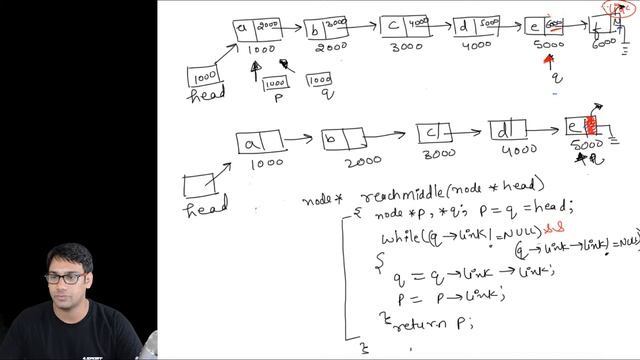 a 2000 b 3000 c 4000 d 5000 e 6000 f N
1000 2000 3000 4000 5000 6000
1000 1000 1000 q
head p q
a b c d e
1000 2000 3000 4000 5000
head q
node* reachmiddle(node *head)
{ node *p, *q; p = q = head;
while((q→link != NULL) &&
(q→link→link != NULL)
{
q = q→link→link;
p = p→link;
}
return p;
}